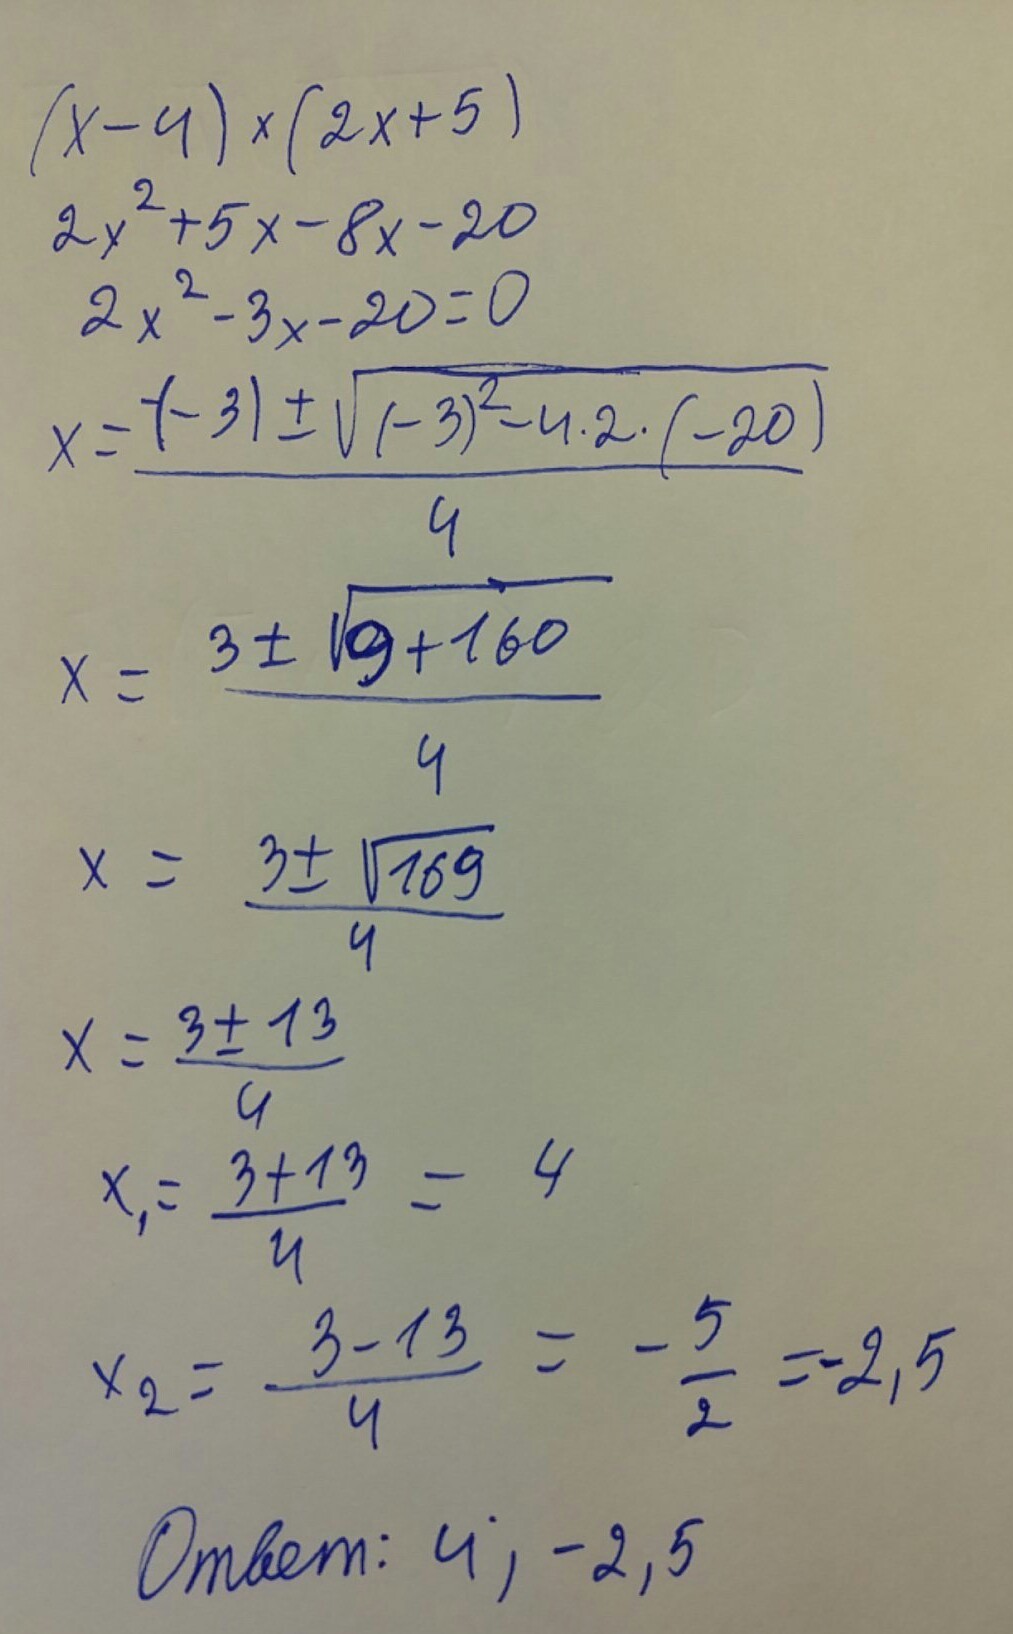 (x-4)×(2x+5)
2x²+5x-8x-20
2x²-3x-20=0
x = (-(-3) ± √((-3)²-4·2·(-20))) / 4
x = (3 ± √(9+160)) / 4
x = (3 ± √169) / 4
x = (3 ± 13) / 4
x₁ = (3+13) / 4 = 4
x₂ = (3-13) / 4 = -5/2 = -2,5
Ответ: 4; -2,5